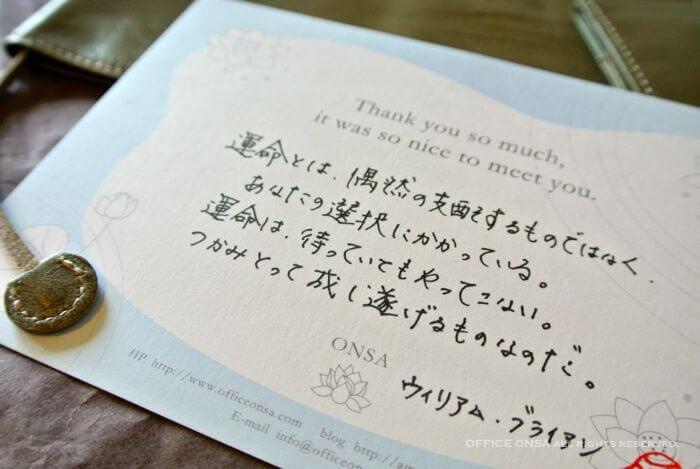 Thank you so much,
it was so nice to meet you.
運命とは、偶然の支配をするものではなく、
あなたの選択にかかっている。
運命は、待っていてもやってこない。
つかみとって成し遂げるものなのだ。
ONSA
ウィリアム・ブライアン
HP http://www.officeonsa.com blog http://am
E-mail info@officeon
OFFICE ONSA ALL RIGHTS RESERVED.